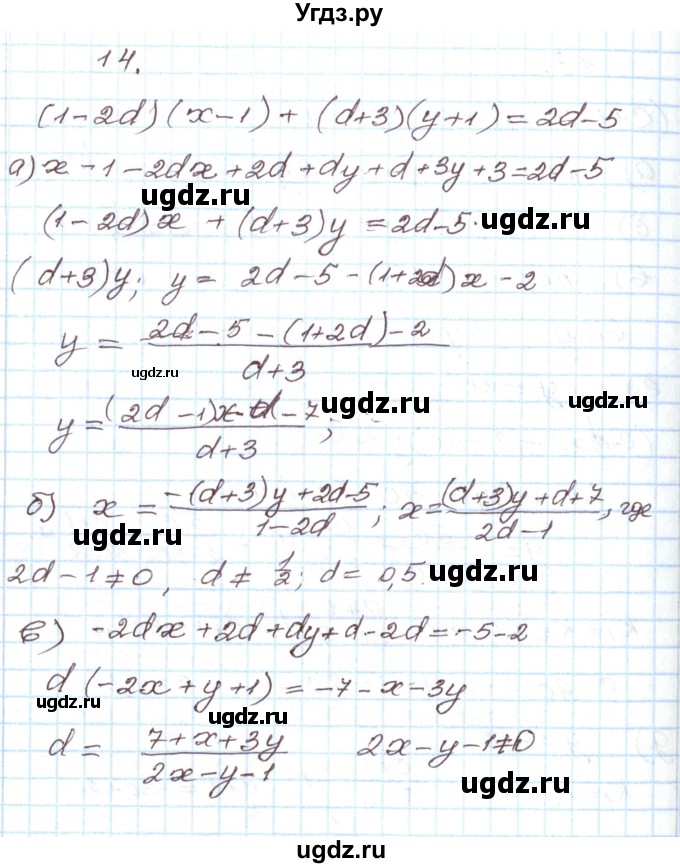 Угдз.ру
14.
(1-2d)(x-1) + (d+3)(y+1) = 2d-5
а) x-1-2dx+2d+dy+d+3y+3=2d-5
ugdz.ru
(1-2d)x + (d+3)y = 2d-5. ugdz.ru
(d+3)y; y = 2d-5-(1+2d)x-2
y = (2d-5-(1+2d)-2)/(d+3)
ugdz.ru ugdz.ru
y = ((2d-1)x-d-7)/(d+3); ugdz.ru ugdz.ru
б) x = (-(d+3)y+2d-5)/(1-2d); x = ((d+3)y+d+7)/(2d-1), где
ugdz.ru ugdz.ru
2d-1≠0, d≠1/2; d= 0,5. ugdz.ru
в) -2dx+2d+dy+d-2d=-5-2
ugdz.ru
d(-2x+y+1) = -7-x-3y
ugdz.ru ugdz.ru
d = (7+x+3y)/(2x-y-1) 2x-y-1≠0
ugdz.ru ugdz.ru
ugdz.ru